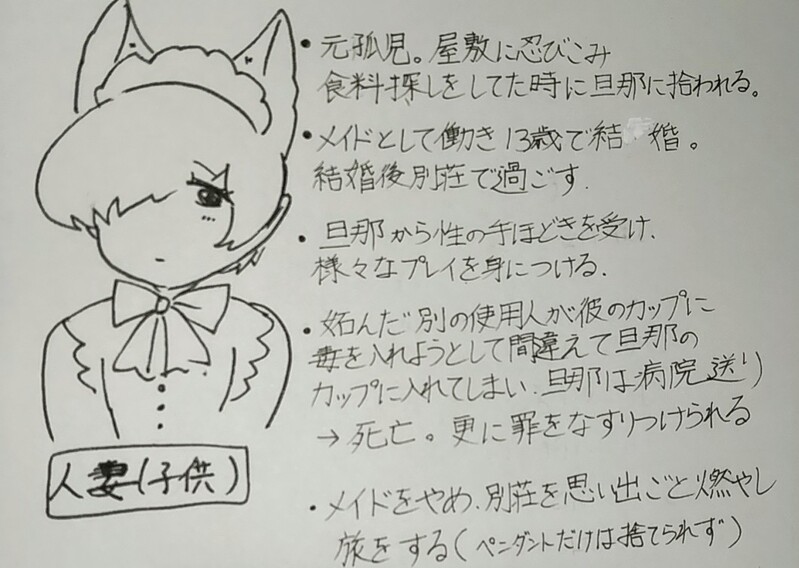 ・元孤児。屋敷に忍びこみ
食料探しをしてた時に旦那に拾われる。
・メイドとして働き13歳で結婚。
結婚後別荘で過ごす.
・旦那から性の手ほどきを受け、
様々なプレイを身につける.
・妬んだ別の使用人が彼のカップに
毒を入れようとして間違えて旦那の
カップに入れてしまい.旦那は病院送り
→死亡。更に罪をなすりつけられる
・メイドをやめ、別荘を思い出ごと燃やし
旅をする(ペンダントだけは捨てられず)
人妻(子供)